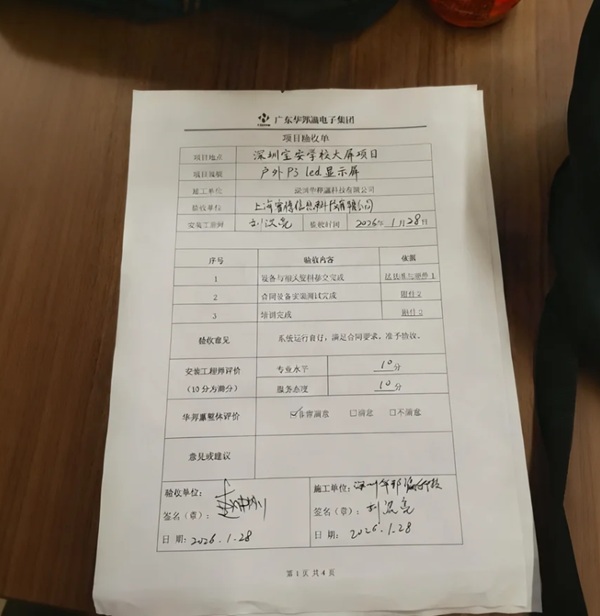 广东华邦瀛电子集团
项目验收单
项目地点 深圳宝安学校大屏项目
项目规格 户外P3 led显示屏
施工单位 深圳华邦瀛科技有限公司
验收单位 上海 信息科技有限公司
安装工程师 刘洪亮 验收时间 2026年1月28日
序号 验收内容 依据
1 设备与相关资料移交完成 附件1
2 合同设备安装调试完成 附件2
3 培训完成 附件2
验收意见 系统运行良好，满足合同要求，准予验收。
安装工程师评价 专业水平 10分
（10分为满分） 服务态度 10分
华邦瀛整体评价 ☑非常满意 □满意 □不满意
意见或建议
验收单位： 施工单位：深圳华邦瀛科技
签名（章）： 签名（章）：刘洪亮
日期：2026.1.28 日期：2026.1.28
第1页共4页